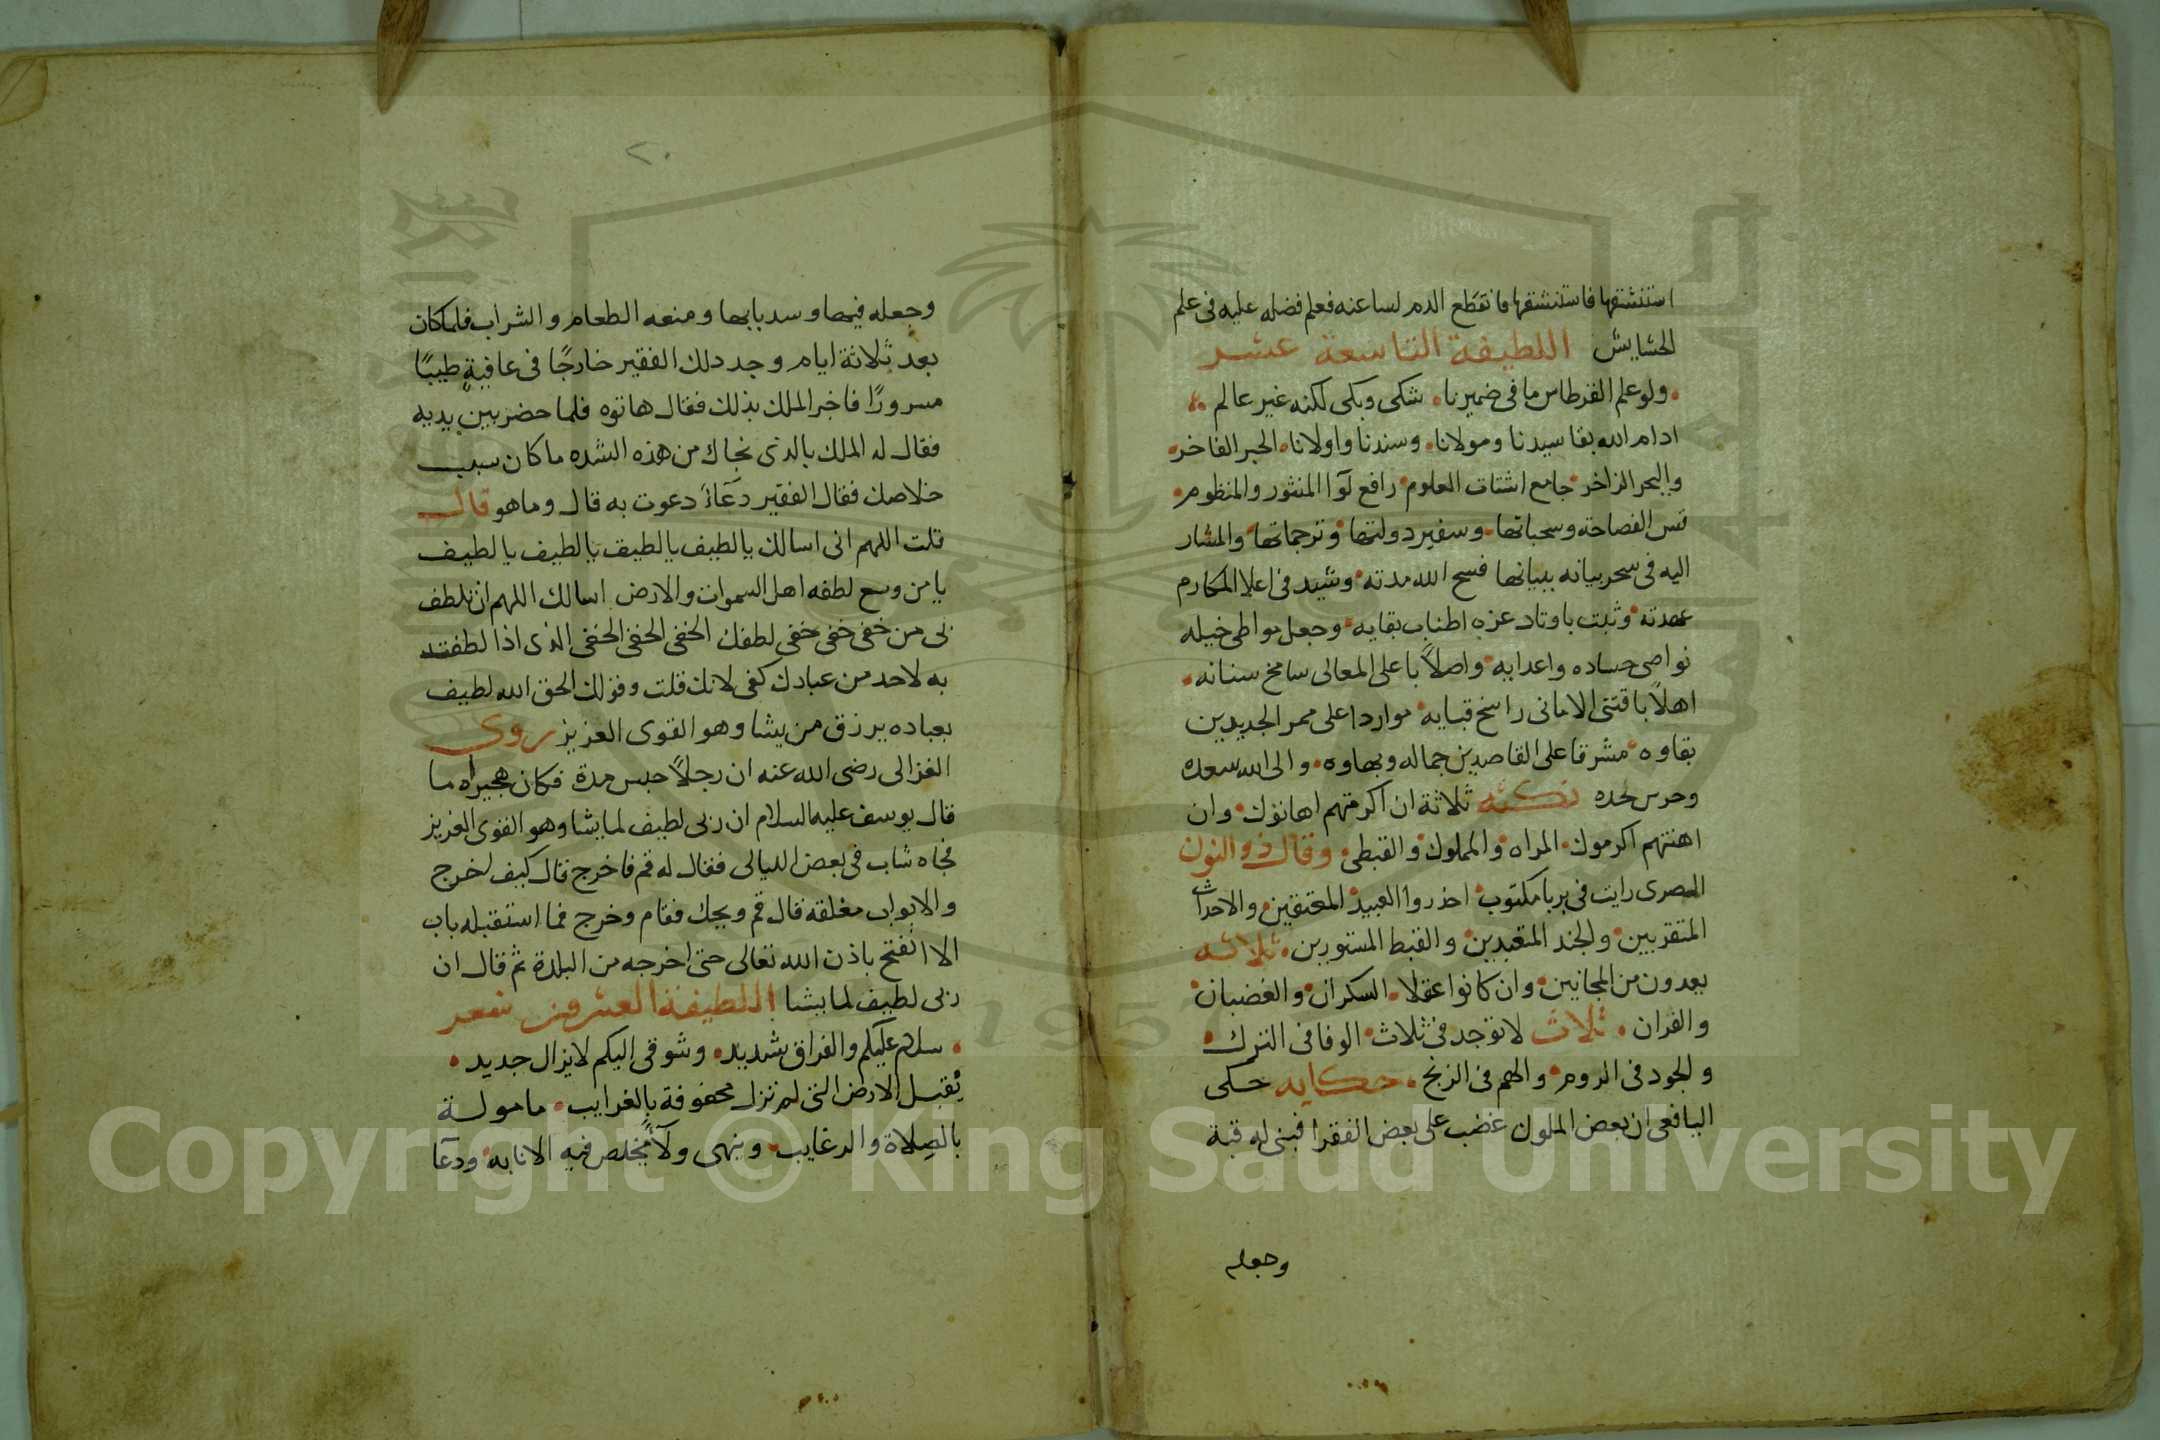 استنشقها فاستنشقها فانقطع الدم لساعته فعلم فضله عليه فى علم
الحشايش اللطيفة التاسعة عشر
ولو علم القرطاس ما فى ضميرنا شكى وبكى لكنه غير عالم
ادام الله بقا سيدنا ومولانا وسندنا واولانا الحبر الفاخر
والبحر الزاخر جامع اشتات العلوم رافع لوآ المنثور والمنظوم
قس الفصاحه وسحبانها وسفير دولتها وترجمانها والمشار
اليه فى سحر بيانه ببيانها فسح الله مدته وشيد فى اعلا المكارم
عمدته وثبت باوتاد عزه اطناب بقايه وجعل مواطى خيله
نواصى حساده واعدايه واصلاً باعلى المعالى سامخ سنانه
اهلاً باقتنى الامانى راسخ قبايه مواردا على ممر الجديدين
بقاوه مشرقا على القاصدين جماله وبهاوه والى الله سعده
وحرس لحده نكته ثلاثة ان اكرمتهم اهانوك وان
اهنتهم اكرموك المراه والمملوك والقبطى وقال ذو النون
المصرى رايت فى بربا مكتوب احذروا العبيد المعتقين والاحداث
المتقربين والجند المتعبدين والقبط المستوربن ثلاثه
يعدون من المجانين وان كانوا عقلا السكران والغضبان
والقران ثلاث لا توجد فى ثلاث الوفا فى الترك
والجود فى الروم والهم فى الزنج حكايه حكى
اليافعى ان بعض الملوك غضب على بعض الفقرا فبنى له قبة
وجعله
٢٠
وجعله فيها وسد بابها ومنعه الطعام والشراب فلما كان
بعد ثلاثة ايام وجد دلك الفقير خارجًا فى عافيةٍ طيبًا
مسرورًا فاخبر الملك بذلك فقال هاتوه فلما حضر بين يديه
فقال له الملك بالدى نجاك من هذه الشده ما كان سبب
خلاصك فقال الفقير دعآء دعوت به قال وما هو قال
قلت اللهم انى اسالك يا لطيف يا لطيف يا لطيف يا لطيف
يا من وسع لطفه اهل السموات والارض اسالك اللهم ان تلطف
بى من خفى خفى خفى لطفك الخفى الخفى الخفى الذى اذا لطفت
به لاحد من عبادك كفى لانك قلت وقولك الحق الله لطيف
بعباده يرزق من يشا وهو القوى العزيز روى
الغزالى رضى الله عنه ان رجلاً حبس مدة فكان هجيراه ما
قال يوسف عليه السلام ان ربى لطيف لما يشا وهو القوى العزيز
فجاه شاب فى بعض الليالى فقال له قم فاخرج قال كيف اخرج
والابواب مغلقه قال قم ويحك فقام وخرج فما استقبله باب
الا انفتح باذن الله تعالى حتى اخرجه من البلدة ثم قال ان
ربى لطيف لما يشا اللطيفة العشرون شعر
سلام عليكم والفراق شديد وشوقى اليكم لا يزال جديد
يُقبل الارض التى لم تزل محفوفة بالغرايب مامولة
بالصلاة والرغايب وينهى ولآءً يخلص فيه الانابه ودعآ
Copyright © King Saud University